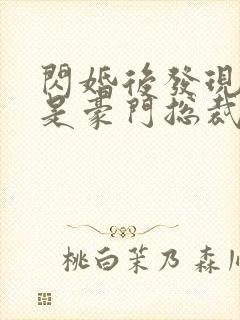 閃婚後發現
是豪門總裁
桃白茉乃 森川